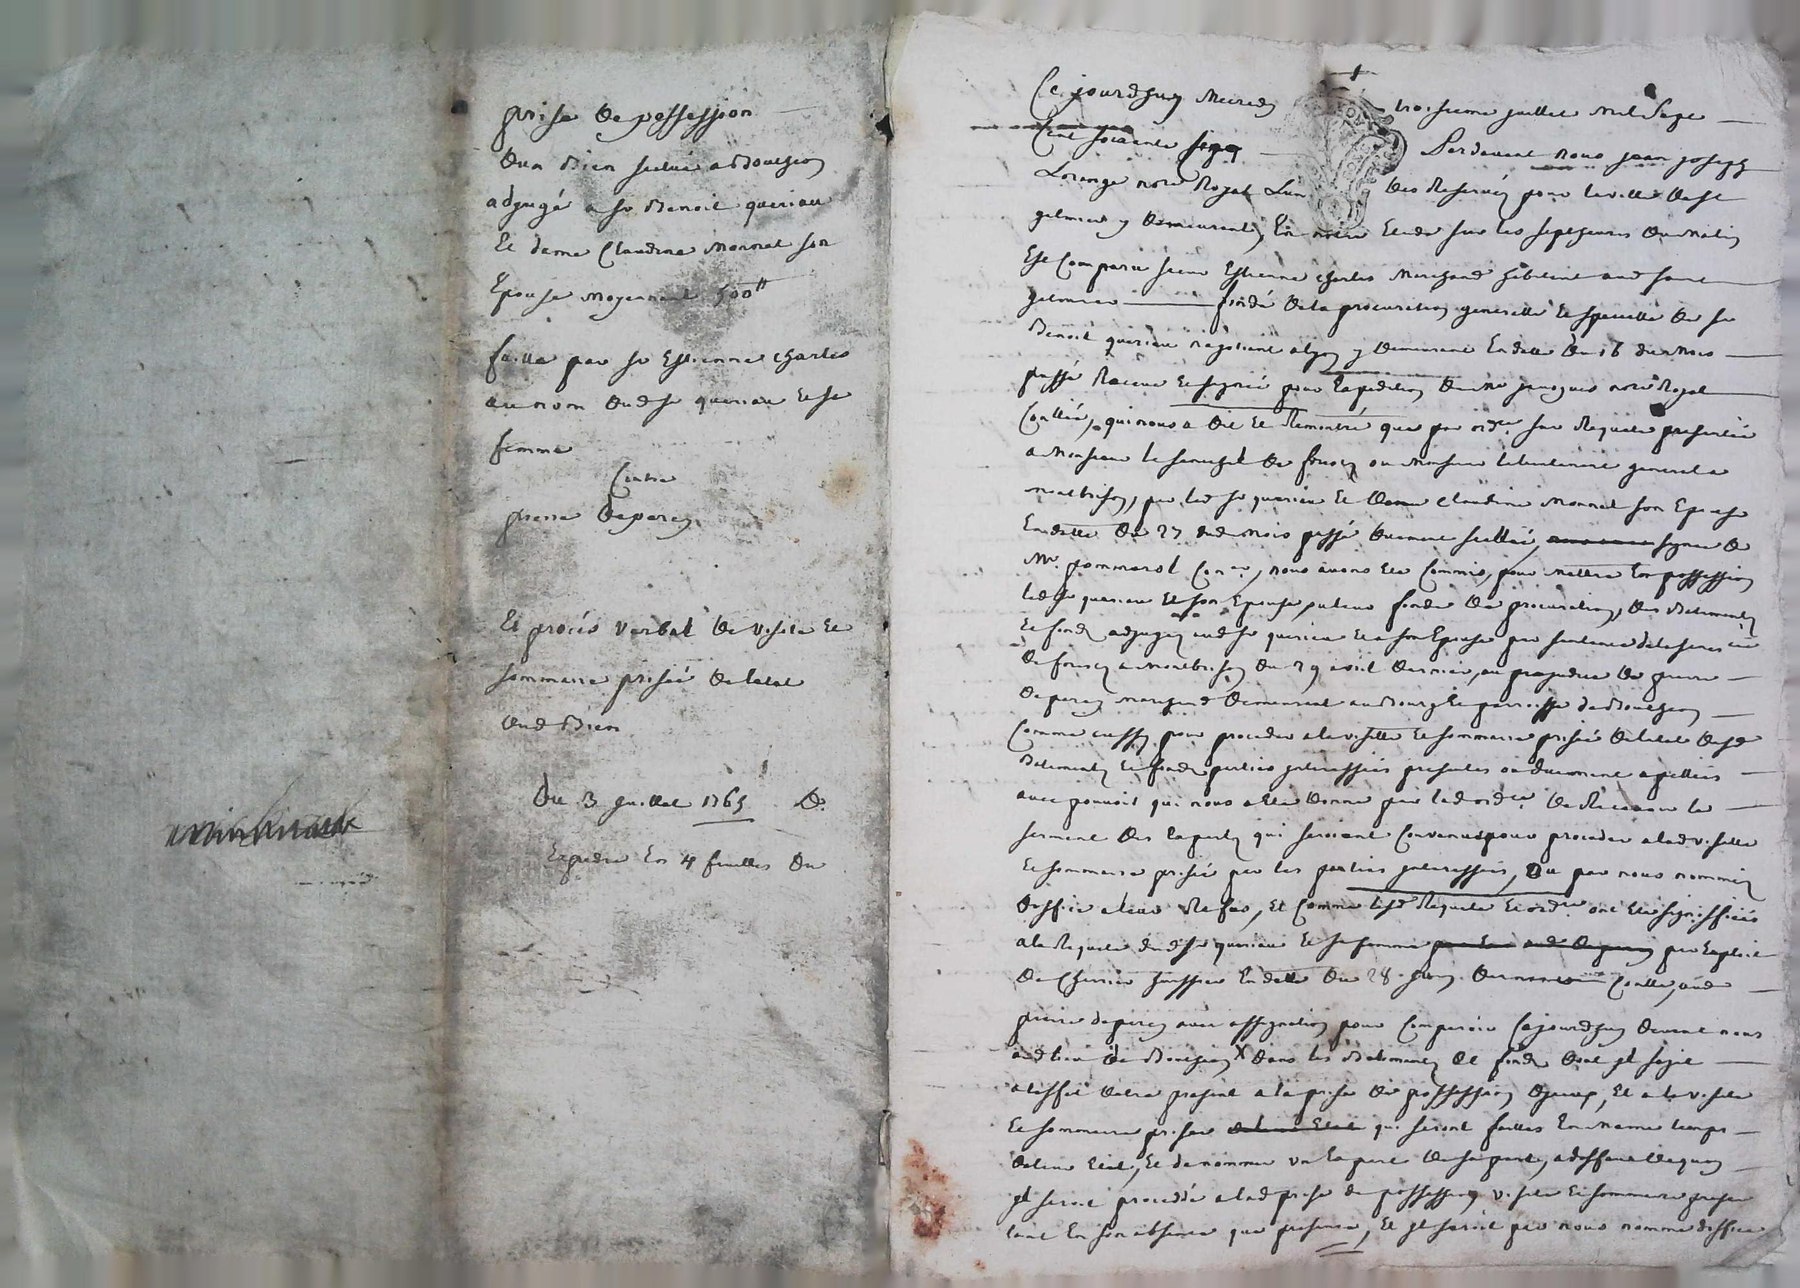 prise de possession
d'un Bien situé a Bouthéon
adjugé a sr Benoit queriau
Et dame Claudine monnet son
Epouse moyennant 500tt
faitte par sr Estienne charles
au nom dud sr queriau et sa
femme
Contre
pierre deperey
Et procés verbal de visitte Et
sommaire prisée de letat
dud Bien
Du 3 juillet 1765
Expedié En 4 feuilles
Ce jourdhuy Mecredy troisieme juillet mil sept
Cent soixante Pardevant nous jean joseph
Lorange notre Royal L'un des Reservés pour la ville de st
galmier y demeurant, En notre Etude sur les sept heures du matin
Est Comparu sieur Estienne charles Marchand habitant aud saint
galmier fondé de la procuration generalle Et specialle de sr
Benoit queriau négotiant a lyon y demeurant En datte du 16 du mois
passé Receue Et signée pour Expedition du Me notre Royal
qui nous a dit Et Remontré que par ordce sur Requete presentée
a Monsieur le senechal de forest ou Monsieur le lieutenant general a
montbrison, par led sr queriau Et dame claudine Monnet son Epouse
En datte du 27 dud mois passé duement scellée, signée de
Mr. pommerol nous avons Eté Commis, pour mettre En possession
led sr queriau Et son Epouse, ou leur fondé de procuration, des Batiments
Et fonds adjugés aud sr queriau Et a son Epouse par sentence de la senéch.
de forest a Montbrison du 29 avril dernier, au prejudice de pierre
deperey marchand demeurant au Bourg Et parroisse de Bouthéon
Comme aussy pour proceder a la visitte Et sommaire prisée de letat desd
Batiments Et fonds parties interessées presentes ou duement apellées
avec pouvoir qui nous a Eté donné par lad ordce de Recevoir le
serment des Experts qui seroient Convenus pour proceder a lad visitte
Et sommaire prisée par les parties interessées, Ou par nous nommés
d'office a leur Refus, Et Comme lesd Requete Et ordce ont Eté signiffiées
a la Requete dud sr queriau Et sa femme par Exploit
de huissier En datte du 28 juin aud
pierre deperey avec assignation pour Comparoir Cejourdhuy devant nous
aud lieu de Bouthéon dans les Batiments Et fonds dont il sagit
a leffet detre present a la prise de possession d'iceux, Et a la visitte
Et sommaire prisée qui seront faittes En meme temps
de leur Etat, Et de nommer un Expert de sa part, a deffaut de quoy
il seroit procédé a lad prise de possession, visitte Et sommaire prisée
tant En son absence que presence, Et il seroit par nous nommé d'office